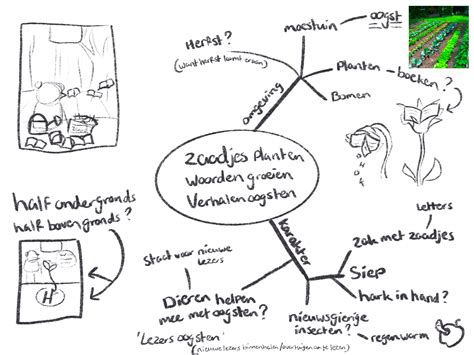 moestuin
oogst
Herfst?
(want herfst komt eraan)
Planten
boeken?
Bomen
omgeving
zaadjes Planten
Woorden groeien
Verhalen oogsten
half ondergronds
half bovengronds?
H
karakter
letters
zak met zaadjes
Siep
hark in hand?
staat voor nieuwe
lezers
Dieren helpen
mee met oogsten?
'Lezers oogsten'
(nieuwe lezers binnenhalen/overtuigen om te lezen)
nieuwsgierige
insecten?
regenworm